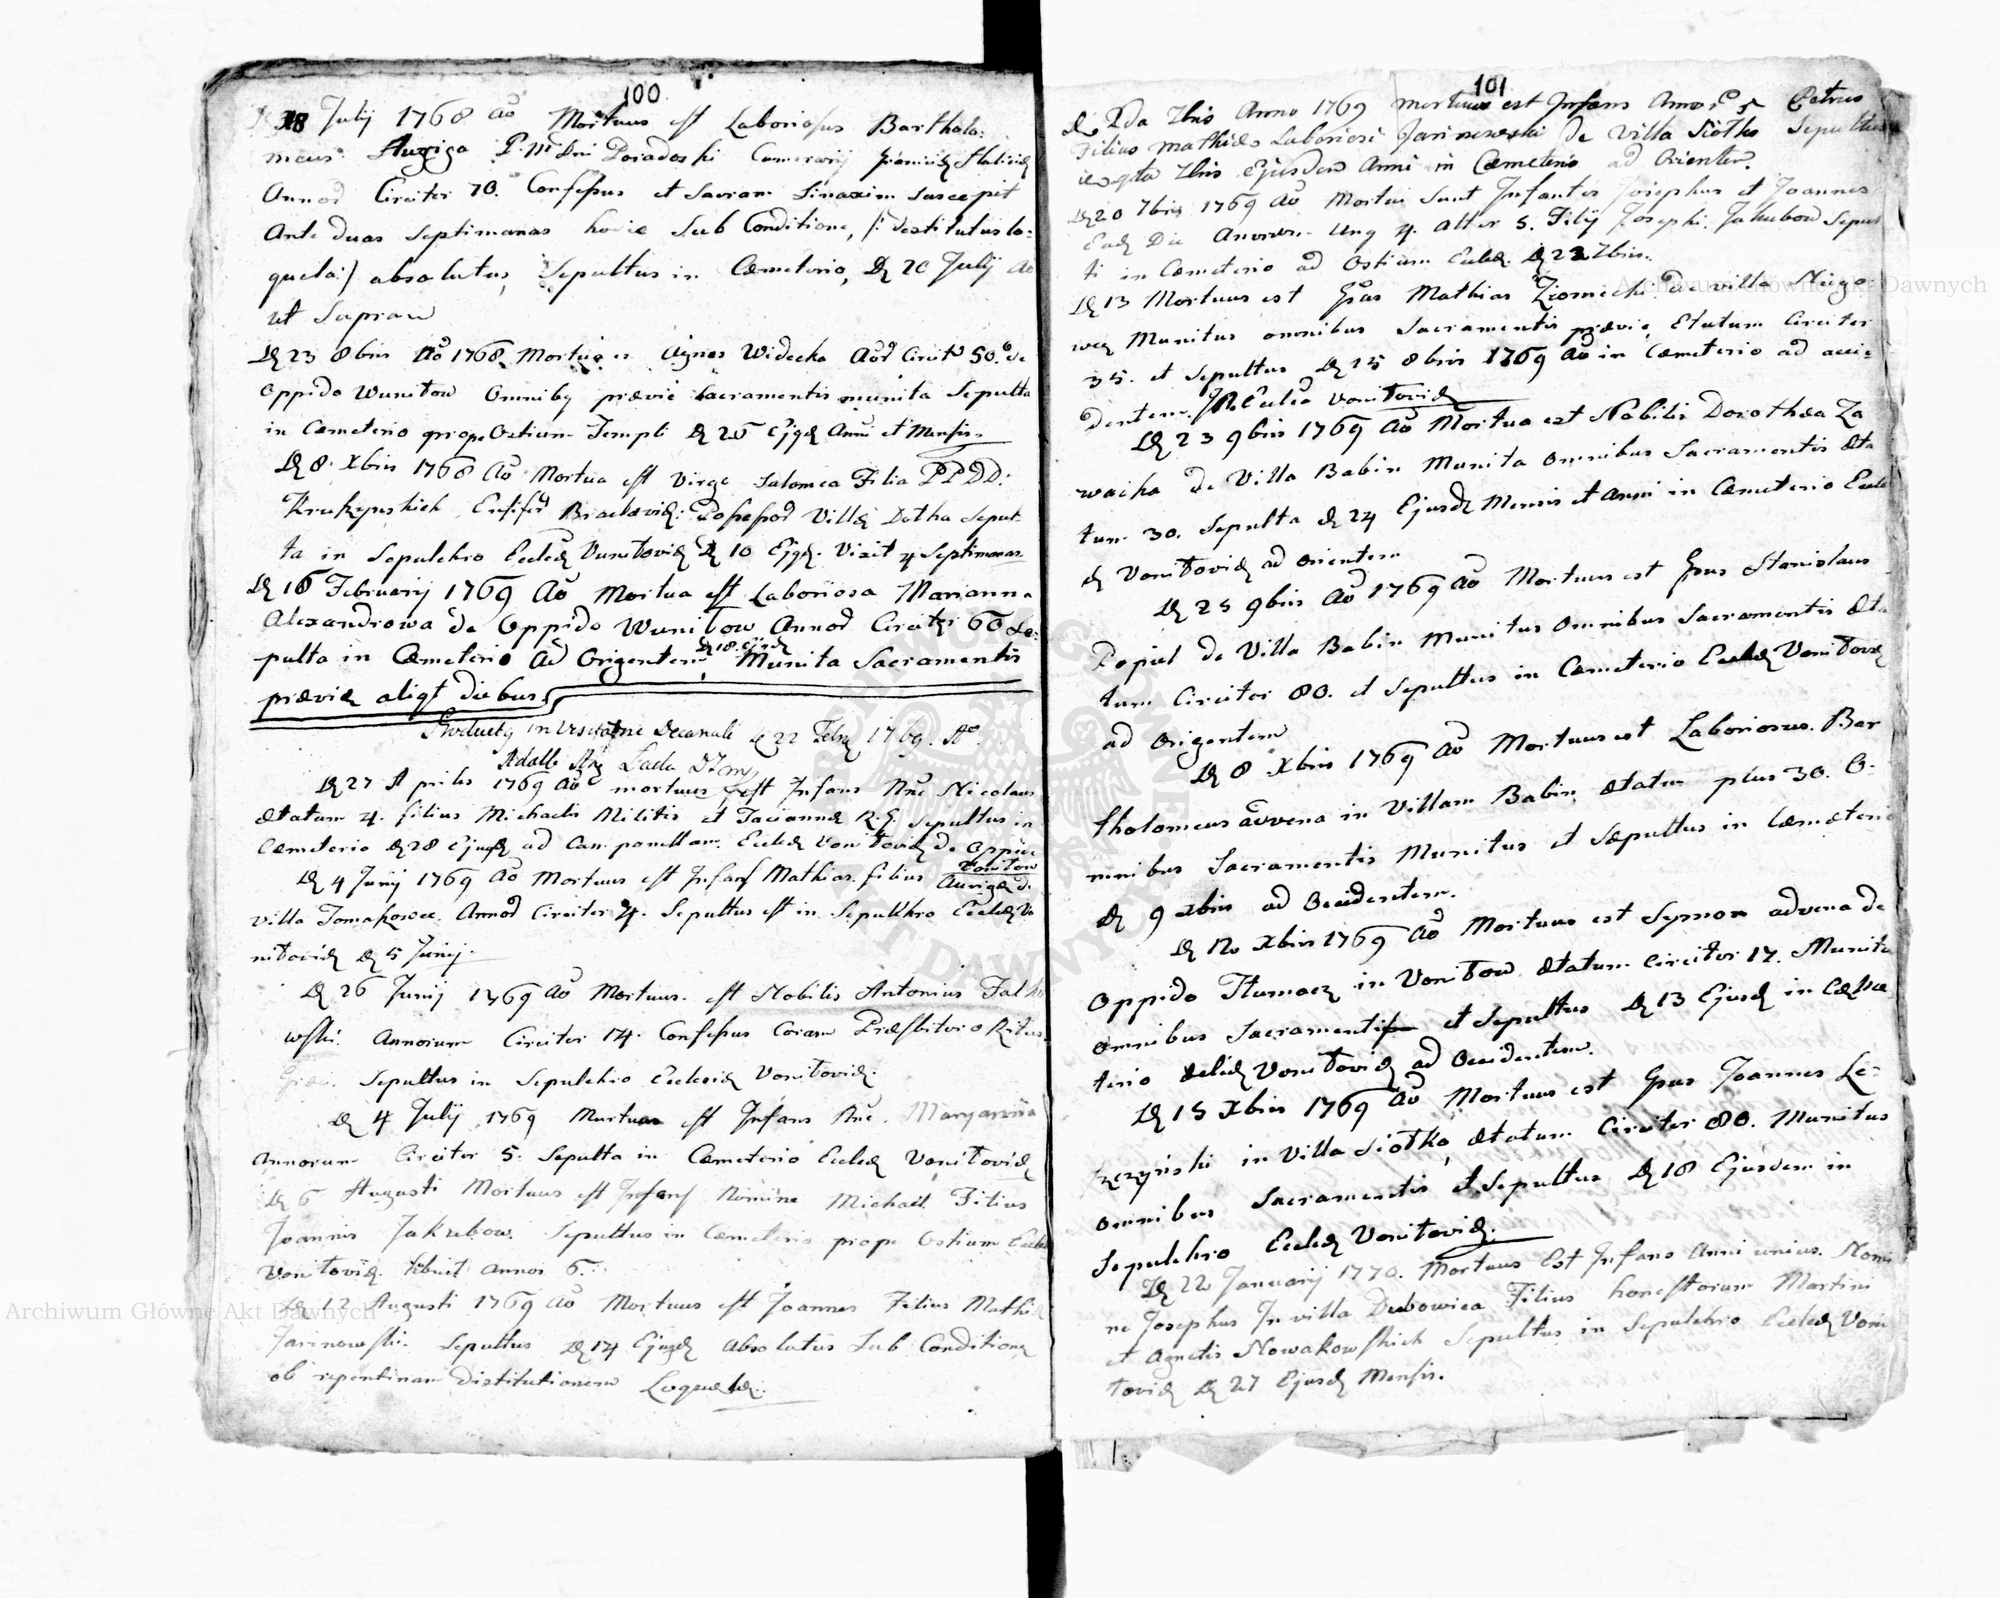 100
18 Julij 1768 Aō Mortuus est Laboriosus Bartholo:
meus Auriga P. M. Dni Doradoski Camerarij
Annor Circiter 70. Confessus et Sacram Sinaxim suscepit
Ante duas Septimanas hodie Sub Conditione, /: destitutus lo:
quela :/ absolutus, Sepultus in Cæmeterio, D 20 Julij Ao
ut Supra
D 23 8bris Aō 1768 Mortua e Agnes Widecka Circit 50. de
Oppido Wunitow Omnibus prævie Sacramentis munita Sepulta
in Cæmeterio prope Ostium Templi D 25 Ejusd Anni et Mensis
D 8 Xbris 1768 Aō Mortua est Virgo Salomea Filia PPDD:
Kruszynskich Braclavie: Possessor Villæ Dolha Sepul
ta in Sepulchro Eccles Vunitovien D 10 Ejusd. Vixit 4 Septimanas
D 16 Februarij 1769 Aō Mortua est Laboriosa Marianna
Alexandrowa de Oppido Wunitow Annor Circiter 60 Se:
D 18 Ejusd
pulta in Cæmeterio Ad Origentem, Munita Sacramentis
præviæ aliqt diebus
Productus in Visitatione Decanali D 22 Febr 1769. Ao.
D 27 Aprilis 1769 Aō mortuus est Infans Nne Nicolaus
Ætatum 4. filius Michaelis Militis et Tacianna R. G. Sepultus in
Cæmeterio D 28 Ejusd ad Campanellam Eccles Vonitovien de Oppido
Vonitow
D 4 Junij 1769 Aō Mortuus est Infans Mathias filius Aurigæ de
villa Tomakowce. Annor Circiter 4. Sepultus est in Sepulchro Eccles Vo
nitovien D 5 Junij.
D 26 Junij 1769 Aō Mortuus est Nobilis Antonius Falko
wski. Annorum Circiter 14. Confessus Coram Præsbitero Ritus
Græci. Sepultus in Sepulchro Ecclesiæ Vonitovien.
D 4 Julij 1769 Mortua est Infans Nne Maryanna
Annorum Circiter 5. Sepulta in Cæmeterio Eccles Vonitovien
D 6 Augusti Mortuus est Infans Nomine Michael Filius
Joannis Jakubow. Sepultus in Cæmeterio prope Ostium Eccles
Vonitovien. Habuit annos 6.
D 12 Augusti 1769 Aō Mortuus est Joannes Filius Mathiæ
Jarinowski. Sepultus D 14 Ejusd Absolutus Sub Conditione
ob repentinam Distitutionem Loquelæ.
101
D 2da 7bris Anno 1769 mortuus est Infans Annor 5 Petrus
Filius Mathiæ Laboriosi Jarinowski de Villa Siolko Sepultus
4ta 7bris Ejusdem Anni in Cæmeterio ad Orientem.
D 20 7bris 1769 Aō Mortui Sunt Infantes Josephus et Joannes
Ead Die Annorum Unus 4. Alter 5. Filij Josephi Jakubow Sepul
ti in Cæmeterio ad Ostium Eccles D 22 7bris.
D 13 Mortuus est Gnus Mathias Ziomecki de villa Niego
wce Munitus omnibus Sacramentis prævie, Ætatum Circiter
35. et Sepultus D 15 8bris 1769 Aō in Cæmeterio ad acci=
dentem. Eccles Vonitovien
D 23 9bris 1769 Aō Mortua est Nobilis Dorothea Za
wacka de Villa Babin Munita Omnibus Sacramentis Æta
tum 30. Sepulta D 24 Ejusd Mensis et Anni in Cæmeterio Eccle
Vonitovien ad Orientem
D 25 9bris Aō 1769 Aō Mortuus est Gnus Stanislaus
Popiel de Villa Babin Munitus Omnibus Sacramentis Æta
tum Circiter 80. et Sepultus in Cæmeterio Eccles Vonitovien
ad Origentem
D 8 Xbris 1769 Aō Mortuus est Laboriosus. Bar
tholomeus advena in Villam Babin, Ætatum plus 30. O=
mnibus Sacramentis Munitus et Sæpultus in Cæmeterio
D 9 Xbris ad Occidentem.
D 12 Xbris 1769 Aō Mortuus est Symon advena de
Oppido Tlumacz in Vonitow Ætatum Circiter 17. Munitus
Omnibus Sacramentis et Sepultus D 13 Ejusd in Cæme
terio Eccles Vonitovien ad Occidentem.
D 15 Xbris 1769 Aō Mortuus est Gnus Joannes Le=
szczyński in Villa Siolko, Ætatum Circiter 80. Munitus
Omnibus Sacramentis et Sepultus D 18 Ejusdem in
Sepulchro Eccles Vonitovien.
D 22 Januarij 1770. Mortuus Est Infans Anni unius. Nomi
ne Josephus In villa Dubowica Filius honestorum Martini
et Agnetis Nowakowskich Sepultus in Sepulchro Eccles Voni
tovien D 27 Ejusd Mensis.
Archiwum Główne Akt Dawnych
Archiwum Główne Akt Dawnych